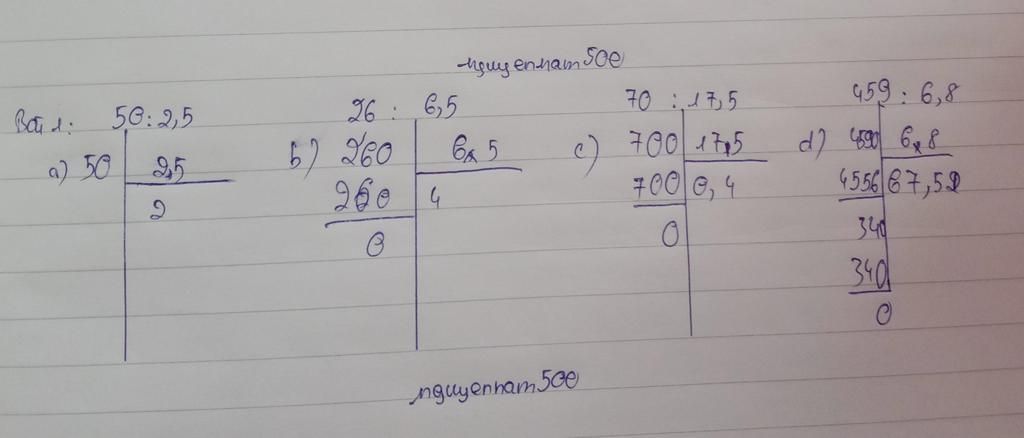 nguyennam50e
Bài 1: 50 : 2,5 26 : 6,5 70 : 17,5 459 : 6,8
a) 50 2,5 b) 260 6,5 c) 700 17,5 d) 4590 6,8
2 260 4 700 0,4 4556 67,5
0 0 340
340
0
nguyennam50e